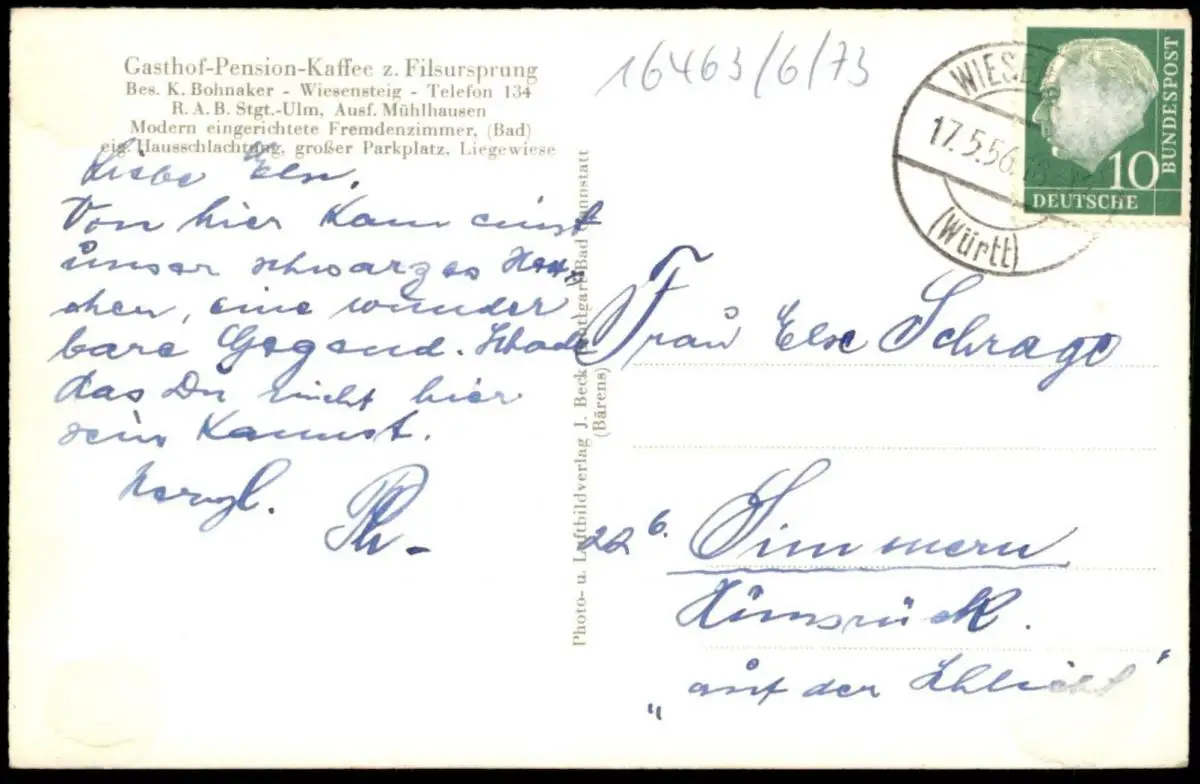 Gasthof-Pension-Kaffee z. Filsursprung
Bes. K. Bohnaker - Wiesensteig - Telefon 134
R. A. B. Stgt.-Ulm, Ausf. Mühlhausen
Modern eingerichtete Fremdenzimmer, (Bad)
eig. Hausschlachtung, großer Parkplatz, Liegewiese
16463/6/73
WIESEN
17.5.56
(Württ)
BUNDESPOST
10
DEUTSCHE
Liebe Else,
Von hier kam einst
unser schwarzes
chen, eine wunder
bare Gegend. Schade
das Du nicht hier
sein kannst.
Herzl.
Th-
Photo- u. Luftbildverlag J. Beck Stuttgart-Bad Cannstatt
(Bärens)
Frau Else Schrage
22 b. Simmern
Hunsrück.
„auf der Schlicht"